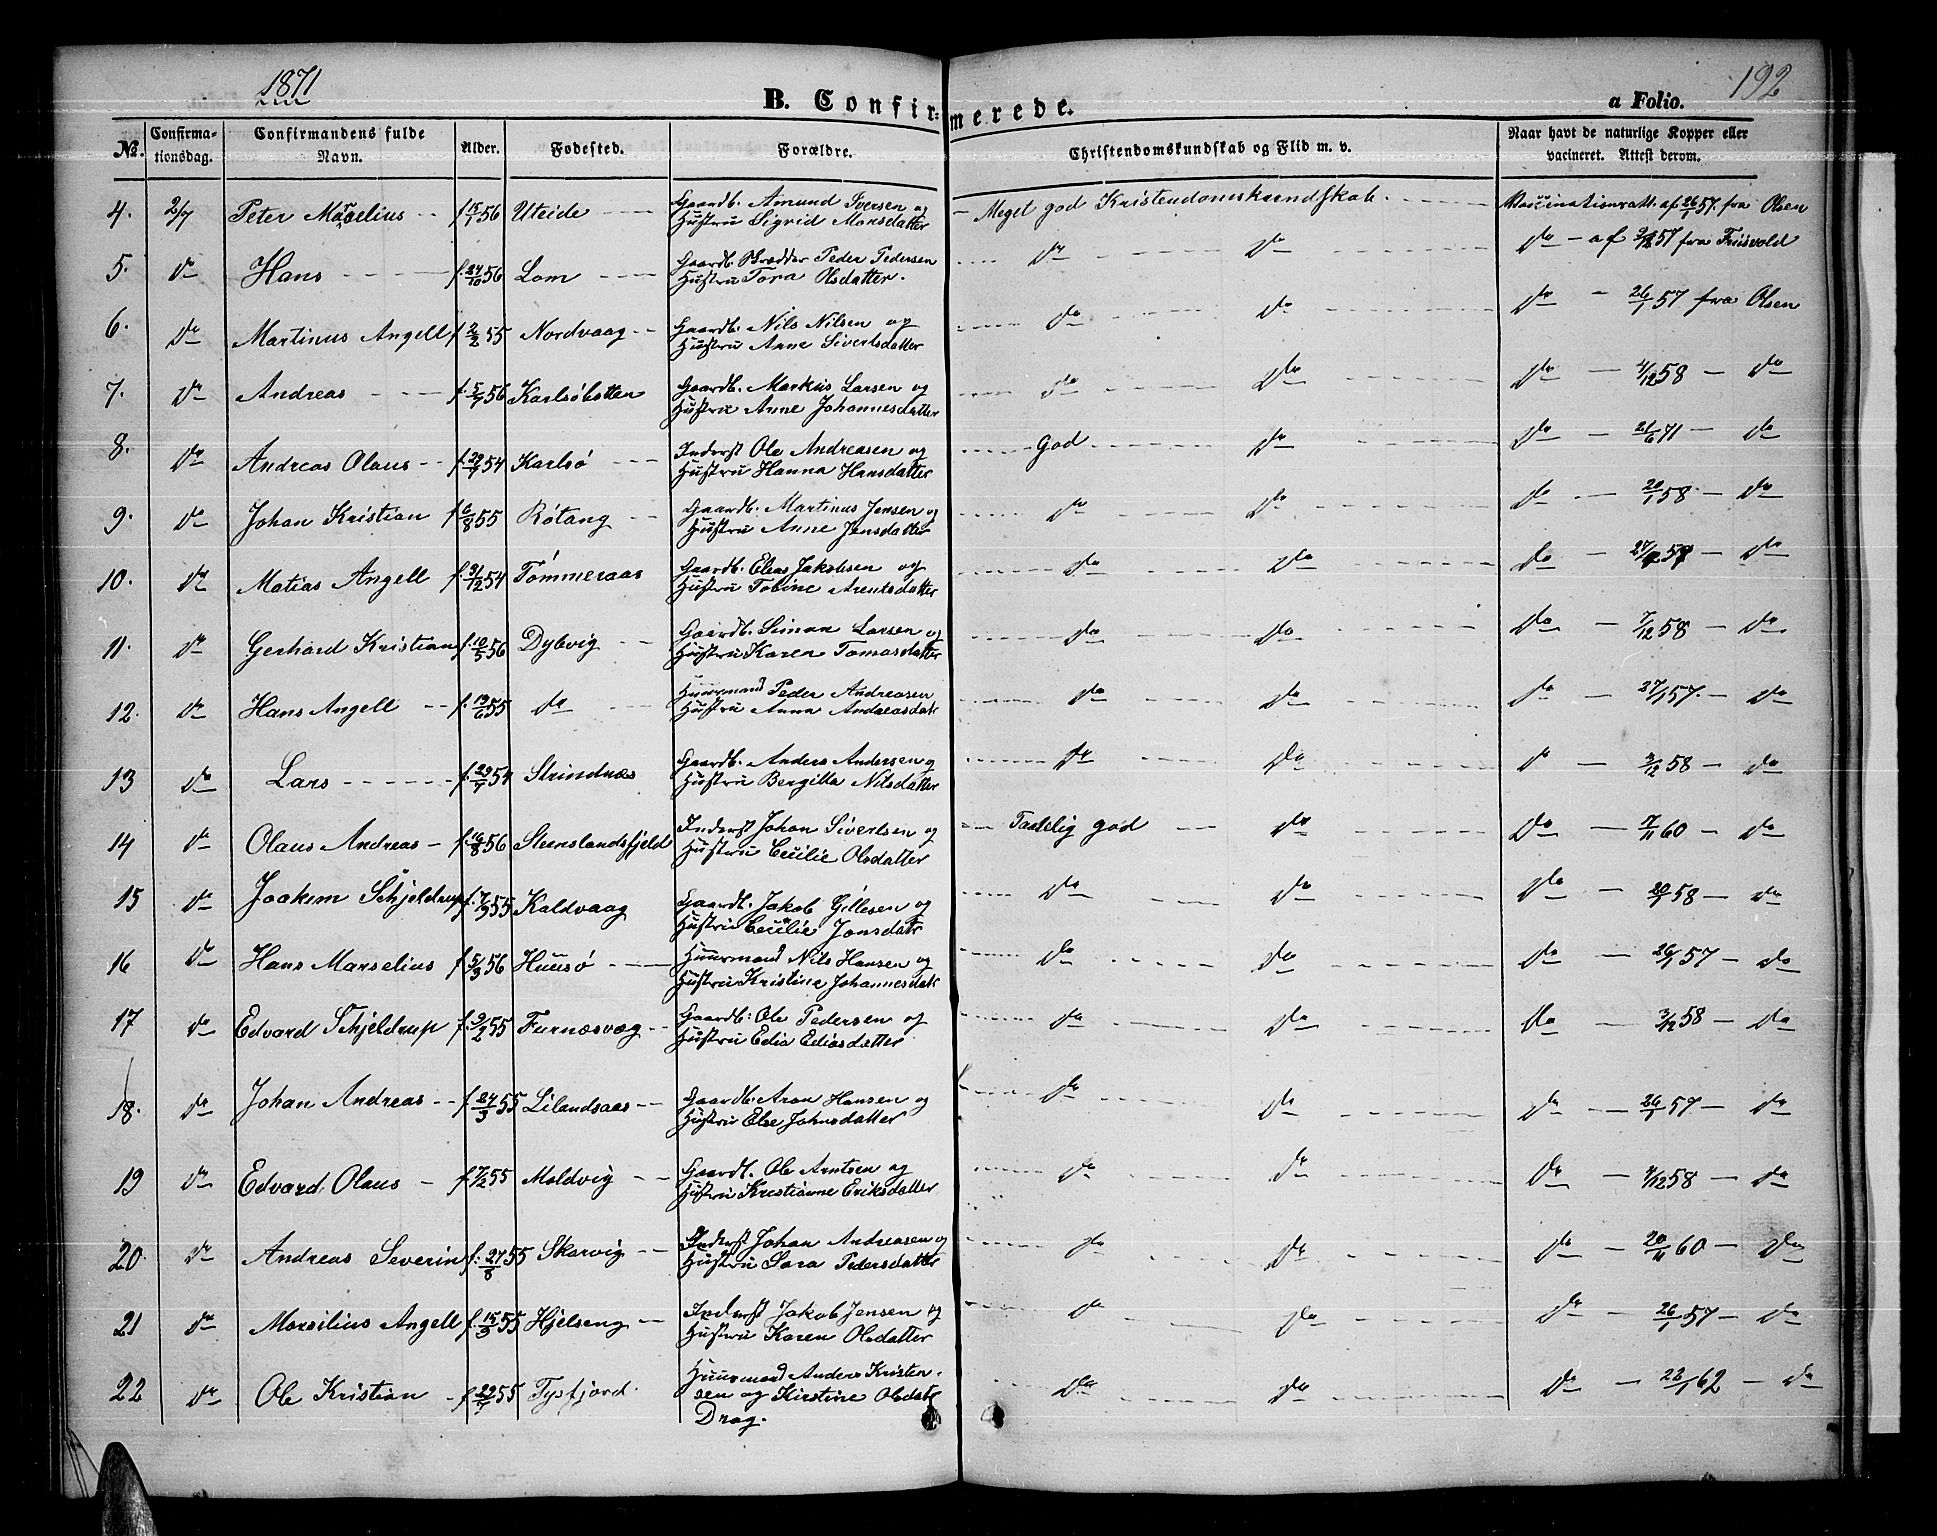 1871
192
B. Confirmerede.
a Folio.
№.
Confirmationsdag.
Confirmandens fulde Navn.
Alder.
Fodested.
Forældre.
Christendomskundskab og Flid m. v.
Naar havt de naturlige Kopper eller vacineret. Attest derom.
4. 2/7 Peter Marselius -- f 15/7 56 Uteide --- Gaardb. Amund Iversen og Hustru Sigrid Monsdatter - Meget god Kristendomskundskab. Vaccinationsatt. af 26/1 57. fra Olsen
5. do Hans ---- f. 24/10 56 Lom --- Gaardb. Brødder Peder Pedersen Hustru Tora Olsdatter. do do do - af 2/12 57 fra Friisvold
6. do Martinus Angell f. 2/2 55 Nordvaag -- Gaardb. Nils Nilsen og Hustru Anne Sivertsdatter do do do - 26/1 57 fra Olsen
7. do Andreas --- f. 5/7 56 Karlsøbotten Gaardb. Markus Larsen og Hustru Anne Johannesdatter do do do - 4/12 58 - do
8. do Andreas Olaus -- f. 29/7 54 Karlsø --- Inderst Ole Andreasen og Hustru Hanna Hansdatter God do do - 21/6 71 - do
9. do Johan Kristian f 6/8 55 Røtang -- Gaardb. Martinus Jensen og Hustru Anne Jensdatter do do do - 20/1 58 - do
10. do Matias Angell f. 31/12 54 Tømmeraas Gaardb. Elias Jakobsen og Hustru Tobine Arentsdatter do do do - 57 - do
11. do Gerhard Kristian f. 10/5 56 Dybvig -- Gaardb. Simon Larsen og Hustru Karen Tomasdatter do do do - 7/12 58 - do
12. do Hans Angell -- f. 19/6 55 do --- Huurmand Peder Andreasen Hustru Anna Andreasdatr do do do - 27/1 57. - do
13 do Lars ----- f. 29/7 54 Strindnæs Gaardb. Anders Andersen og Hustru Bergitta Nilsdatter do do do - 3/12 58 - do
14 do Olaus Andreas - f. 16/8 56 Steenslandsfjeld Inderst Johan Sivertsen og Hustru Cecilie Olsdatter -- Taalelig god -- do do - 7/11 60 - do
15 do Joakim Schjeldrup f. 7/9 55 Kaldvaag Gaardb. Jakob Gillesen og Hustru Cecilie Jonsdatr do do do - 20/1 58 - do
16 do Hans Marselius f. 5/3 56 Huusø --- Huurmand Nils Hansen og Hustru Kristine Johannesdatr do do do - 26/1 57 - do
17 do Edvard Schjeldrup f. 9/2 55 Furnæsvæg -- Gaardb: Ole Pedersen og Hustru Edia Ediasdatter do do do - 3/12 58 - do
18. do Johan Andreas -- f. 24/3 55 Lilandsaas -- Gaardb. Aron Hansen og Hustru Else Johnsdatter do do do - 26/1 57 - do
19 do Edvard Olaus - f. 7/2 55 Moldvig -- Gaardb. Ole Arntsen og Hustru Kristianne Eriksdatter do do do - 4/12 58 - do
20. do Andreas Severin f: 27/8 55 Skarvig -- Inderst Johan Andreasen og Hustru Sara Pedersdatter do do do - 20/11 60 - do
21 do Marsilius Angell f. 15/3 55 Hjelseng -- Inderst Jakob Jensen og Hustru Karen Olsdatter do do do - 26/1 57 - do
22 do Ole Kristian - f 29/7 55 Tysfjord. Huurmand Anders Kristensen og Kirstine Olsdatr Drag. do do do - 26/1 62 - do